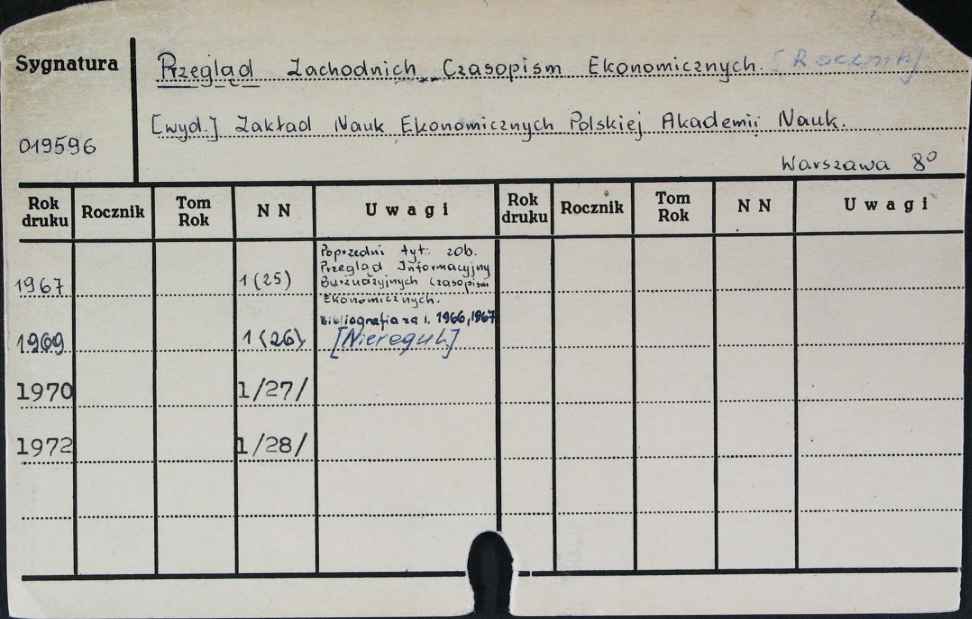 Sygnatura
Przegląd Zachodnich Czasopism Ekonomicznych. [Rocznik]
[wyd.] Zakład Nauk Ekonomicznych Polskiej Akademii Nauk.
019596
Warszawa 8º
Rok druku Rocznik Tom Rok N N Uwagi Rok druku Rocznik Tom Rok N N Uwagi
Poprzedni tyt. zob.
Przegląd Informacyjny
1967 1 (25) Burżuazyjnych Czasopism
Ekonomicznych.
Bibliografia za l. 1966, 1967
1969 1 (26) [Nieregul.]
1970 1/27/
1972 1/28/